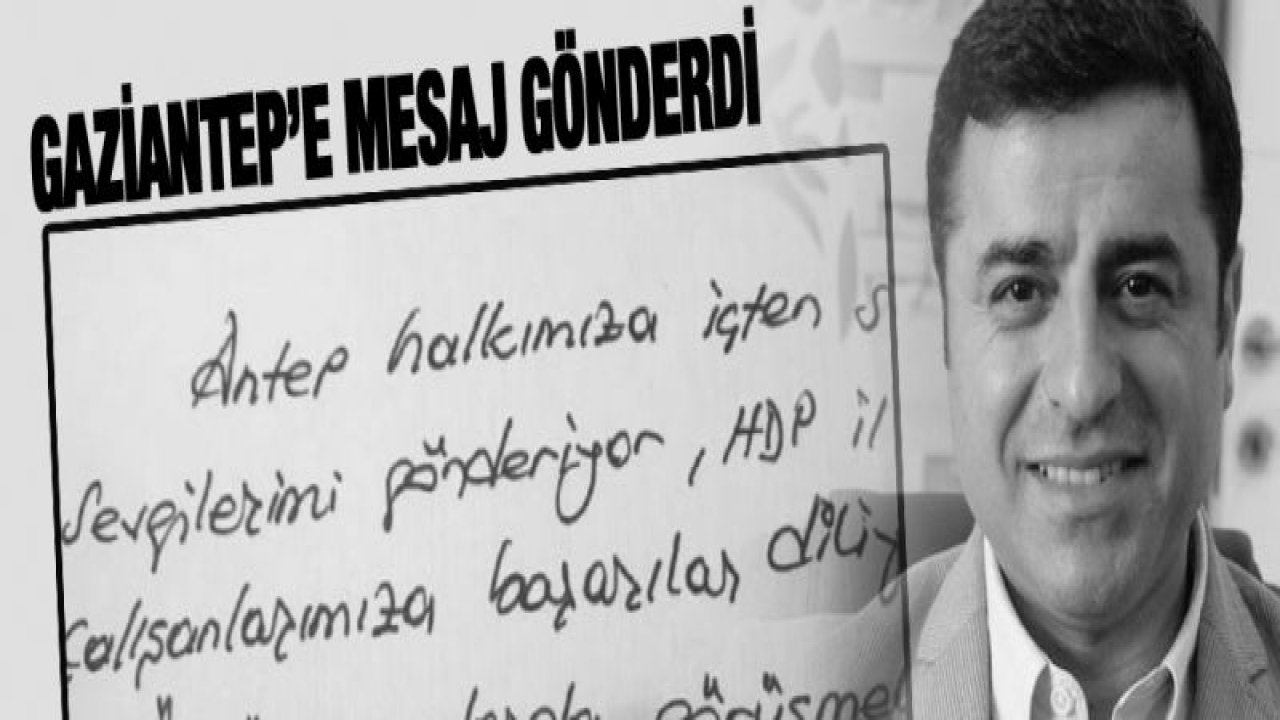 GAZİANTEP'E MESAJ GÖNDERDİ
Antep halkımıza içten s
sevgilerimi gönderiyor, HDP il
çalışanlarımıza başarılar diliy
görüşme